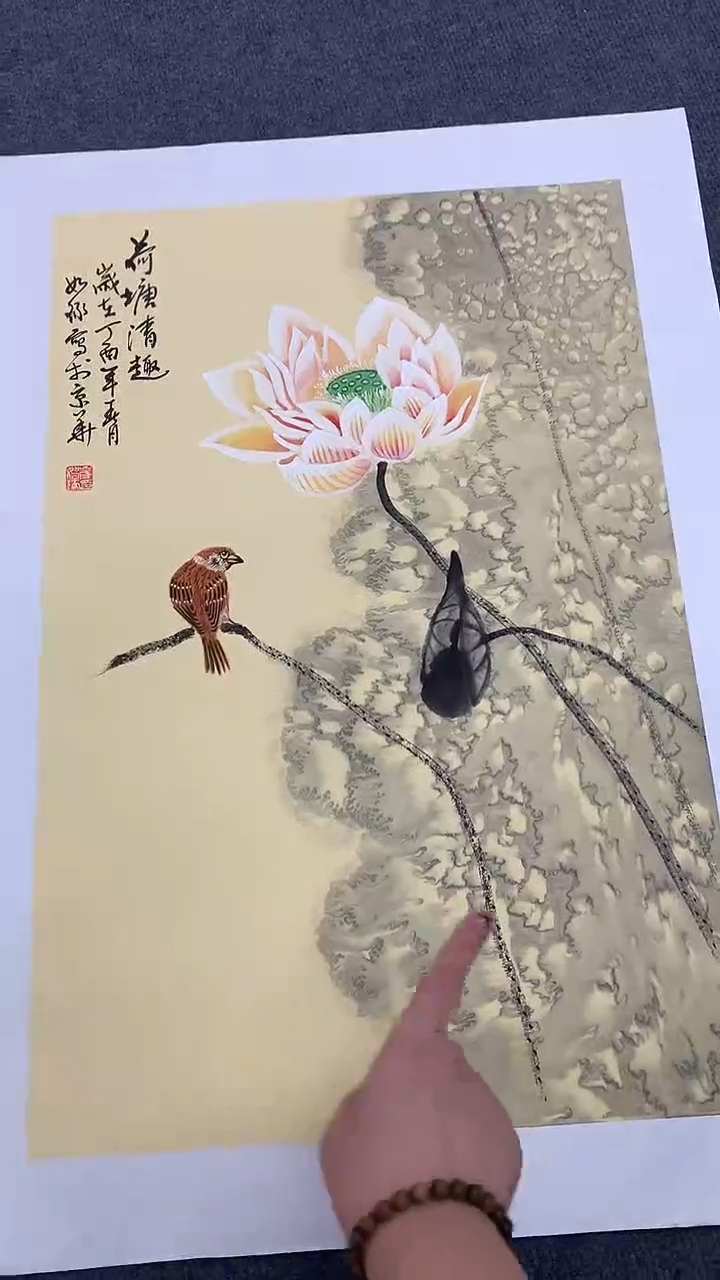 荷塘清趣
歲在丁酉年春月
如禄寫於京華